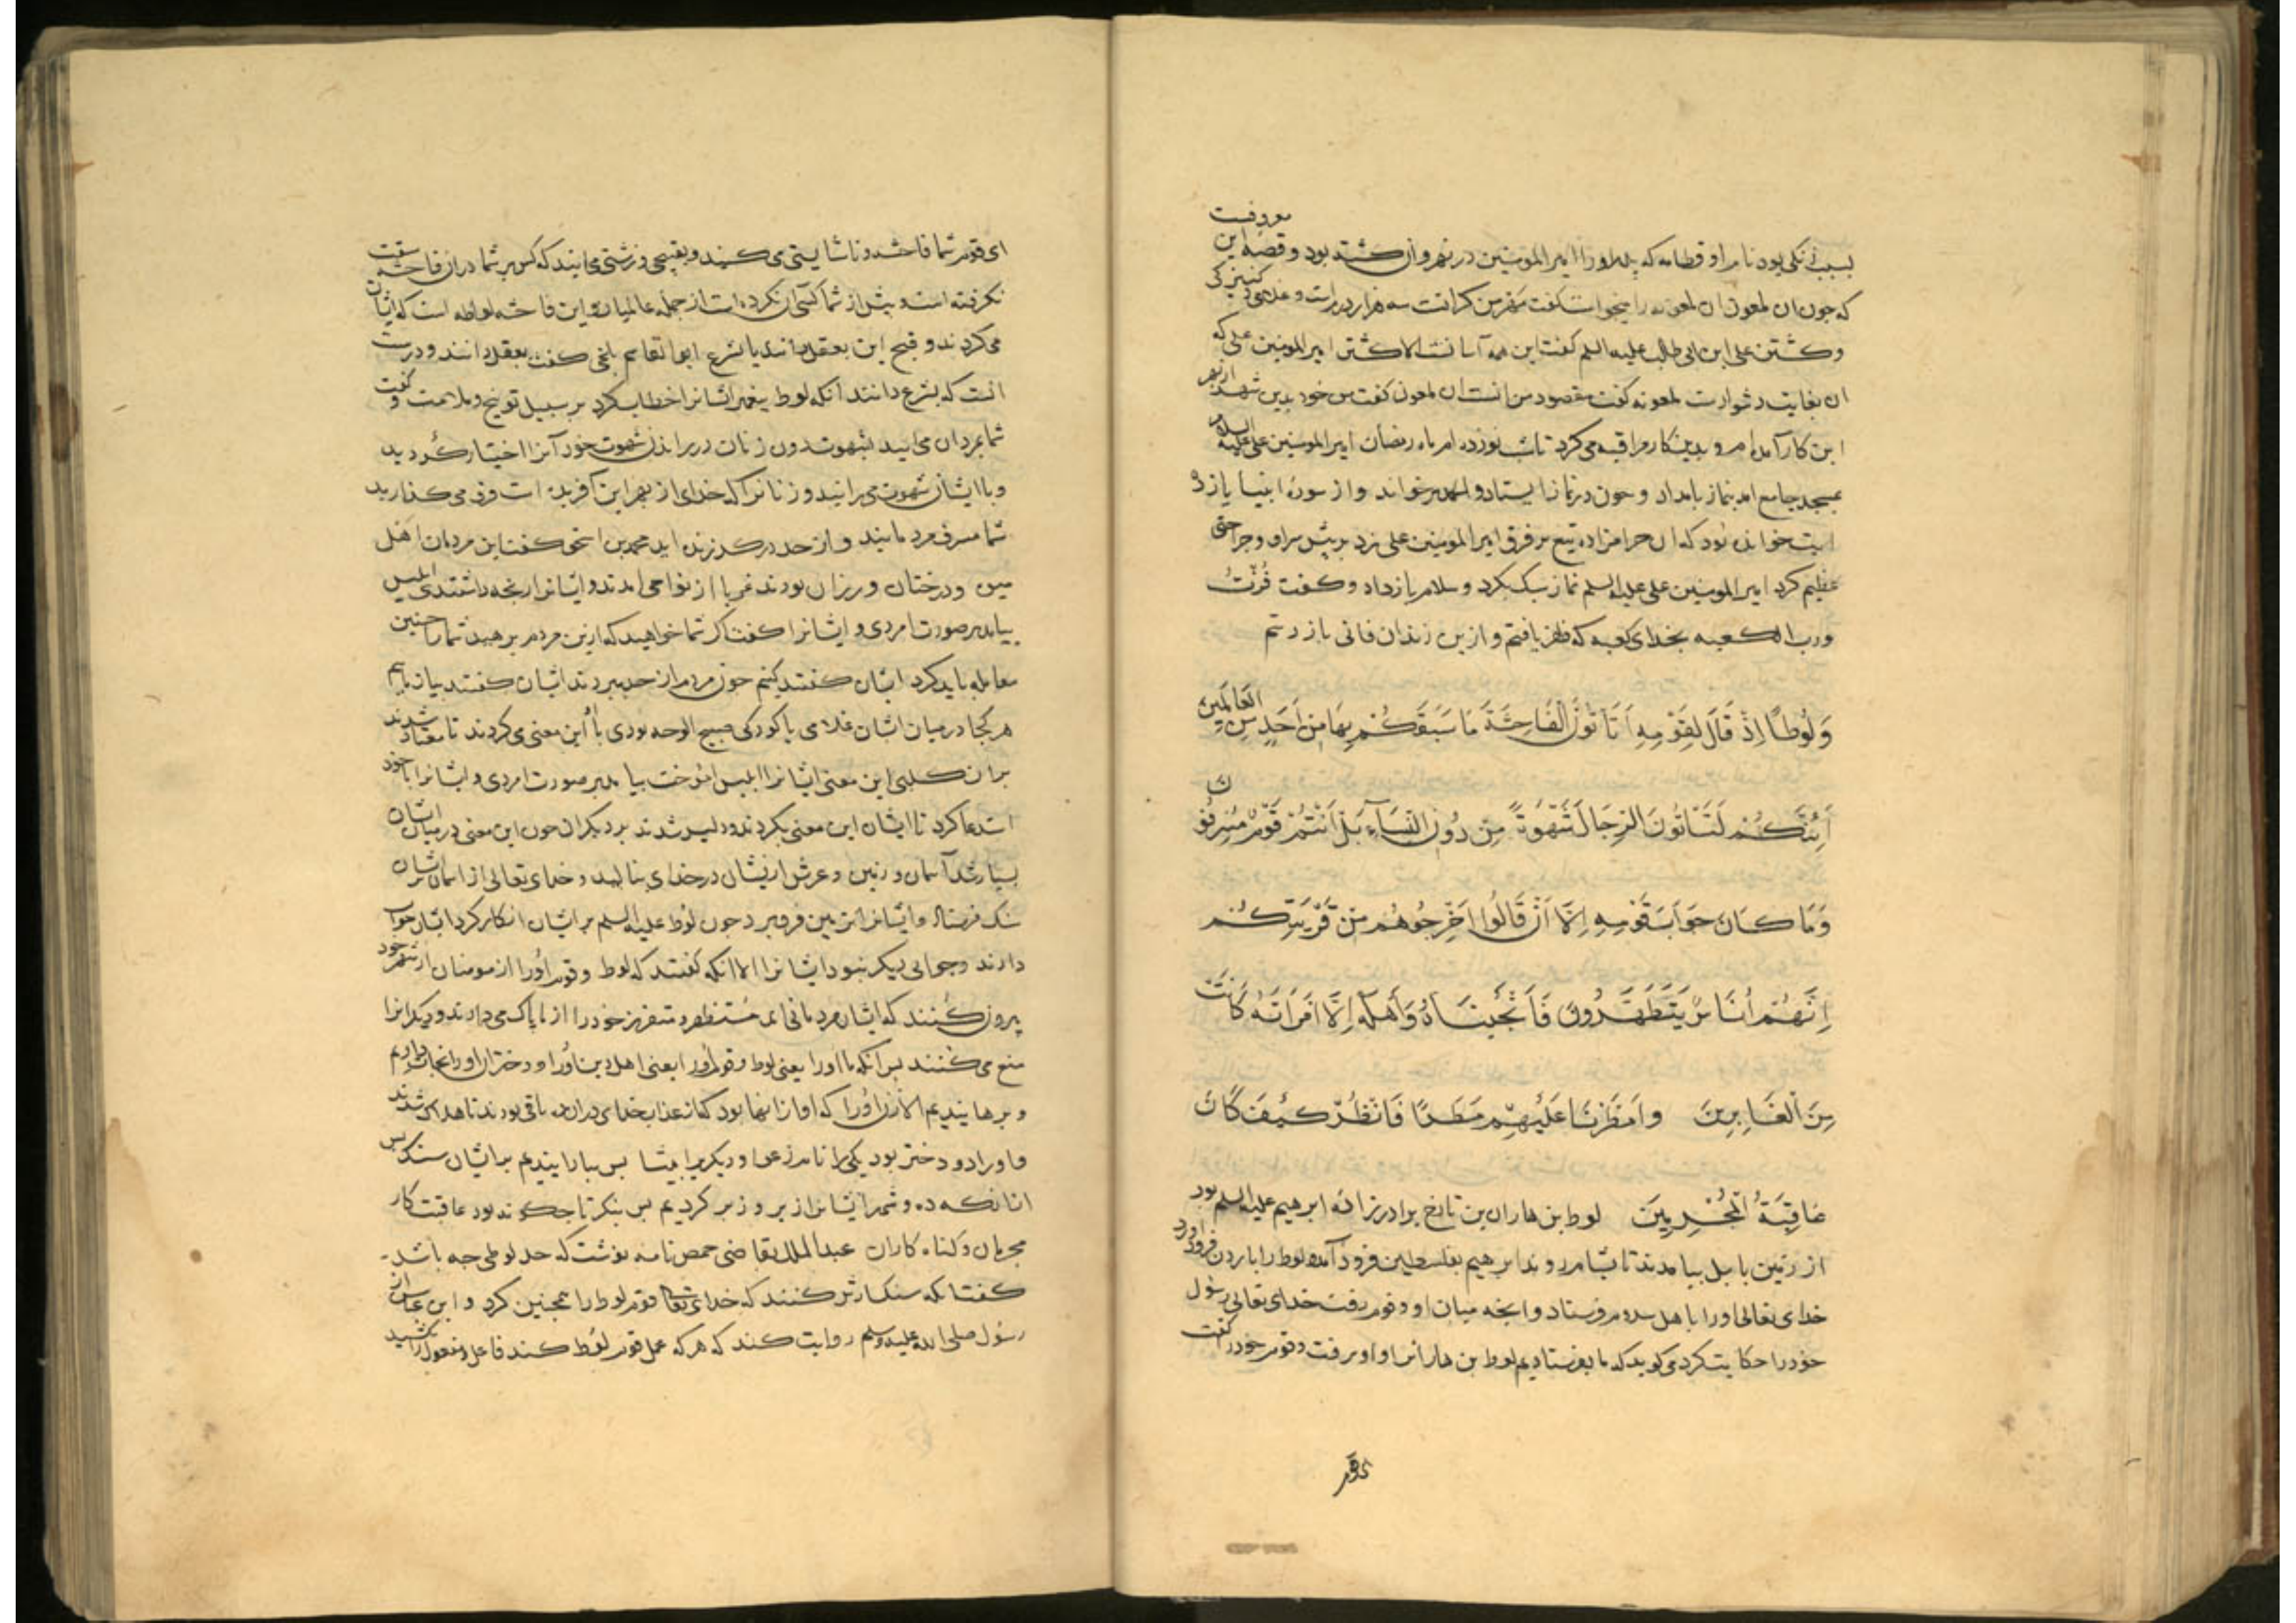 بسبب زنکی بود نام او قطامه که پدر اورا امیرالمومنین در نهروان کشته بود و قصه این معروفست
که جون ان لمعون ان لمعونه را میخواست کفت مهر من کرانست سه هزار درم است و غلامی و کنیزکی
و کشتن علی ابن ابی طالب علیه السلم کفت این همه آسانست الا کشتن امیرالمومنین علی که
ان بغایت دشوارست لمعونه کفت مقصود من انست ان لمعون کفت من خود بدین شهر از بهر
این کار آمده ام و بدین کار مراقبه می کرد تا شب نوزدهم ماه رمضان امیرالمومنین علی علیه السلام
بمسجد جامع امد بنماز بامداد و جون در نماز ایستاد و الحمد برخواند و از سوره انبیا یازده
ایت خوانده بود که ان حرامزاده تیغ بر فرق امیرالمومنین علی زد بر پیش سر او و جراحتی
عظیم کرد امیرالمومنین علی علیه السلم نماز سبک بکرد و سلام بازداد و کفت فُزْتُ
ورب الکعبه بخدای کعبه که ظفر یافتم و ازین زندان فانی باز رستم
وَلُوطًا اِذْ قَالَ لِقَوْمِهِ اَتَأْتُونَ الْفَاحِشَةَ مَا سَبَقَكُمْ بِهَا مِنْ اَحَدٍ مِنَ الْعَالَمِينَ
اَئِنَّكُمْ لَتَأْتُونَ الرِّجَالَ شَهْوَةً مِنْ دُونِ النِّسَآءِ بَلْ اَنْتُمْ قَوْمٌ مُسْرِفُونَ
وَمَا كَانَ جَوَابَ قَوْمِهِ اِلَّا اَنْ قَالُوا اَخْرِجُوهُمْ مِنْ قَرْيَتِكُمْ
اِنَّهُمْ اُنَاسٌ يَتَطَهَّرُونَ فَاَنْجَيْنَاهُ وَاَهْلَهُ اِلَّا امْرَاَتَهُ كَانَتْ
مِنَ الْغَابِرِينَ وَاَمْطَرْنَا عَلَيْهِمْ مَطَرًا فَانْظُرْ كَيْفَ كَانَ
عَاقِبَةُ الْمُجْرِمِينَ لوط بن هاران بن تارخ برادرزاده ابرهیم علیه السلم بود
از زمین بابل بیامدند تا بشام روند ابرهیم بفلسطین فرود آمد و لوط را باردن فرود اورد
خدای تعالی اورا باهل سدوم فرستاد و انجه میان او و قوم رفت خدای تعالی رسول
خود را حکایت کرد می کوید که ما بفرستادیم لوط بن هارانرا و او برفت و قوم خود را کفت
ای قوم
ای قوم شما فاحشه و ناشایستی می کنید و بقبیحی و زشتی می ایند که کس بر شما در ان فاحشه سبقت
نکرفته است و پیش از شما کسی آن نکرده است از جمله عالمیان و این فاحشه لواطه است که ایشان
می کردند و قبح این بعقل دانند یا بشرع ابوالقاسم بلخی کفت بعقل دانند و درست
انست که بشرع دانند انکه لوط پیغمبر ایشانرا خطاب کرد بر سبیل توبیخ و ملامت و کفت
شما بمردان می ایید بشهوت بدون زنان در براندن شهوت خود آنرا اختیار کردید
و با ایشان شهوت می رانید و زنانرا که خدای از بهر این آفریده است فرو می کذارید
شما مسرف مردمانید و از حد درکذرنده اید محمد بن اسحق کفت این مردمان اهل
میوه و درختان و رزان بودند غربا از نواحی امدند و ایشانرا رنجه داشتندی ابلیس
بیامد بر صورت امردی و ایشانرا کفت اکر شما خواهید که ازین مردم برهید شما را جنین
معامله باید کرد ایشان کفتند نکنیم جون مردم از حد ببردند ایشان کفتند بیازماییم
هر کجا در میان ایشان غلامی یا کودکی صبیح الوجه بودی با او این معنی می کردند تا معتاد شدند
بران کلبی این معنی ایشانرا ابلیس اموخت بیامد بر صورت امردی و ایشانرا با خود
استدعا کرد تا ایشان این معنی بکردند و دلیر شدند بر دیکران جون این معنی در میان ایشان
بسیار شد آسمان و زمین و عرش ازیشان در خدای بنالید و خدای تعالی از اسمان بر ایشان
سنک فرستاد و ایشانرا بزمین فرو برد جون لوط علیه السلم بر ایشان انکار کرد ایشان جواب
دادند و جوابی دیکر نبود ایشانرا الا انکه کفتند که لوط و قوم اورا از مومنان از شهر خود
بیرون کنند که ایشان مردمانی اند متطهر و متنزه خود را از ناپاک می دارند و دیکرانرا
منع می کنند بس انکه ما اورا یعنی لوط و قوم اورا یعنی اهل دین اورا و دختران اورا نجات دادیم
و برهانیدیم الا زن اورا که او از انها بود که از عذاب خدای دران ده باقی بودند تا هلاک شدند
و اورا دو دختر بود یکی را نام زعورا و دیکر را بیشا بس ببارانیدیم بر ایشان سنک بس
انانکه ده و شهر ایشانرا زیر و زبر کردیم بس بنکر تا جکونه بود عاقبت کار
مجرمان و کناه کاران عبدالملک بقاضی حمص نامه نوشت که حد لوطی جه باشد
کفت انکه سنکسارش کنند که خدای تعالی قوم لوط را همجنین کرد و ابن عباس از
رسول صلی الله علیه وسلم روایت کند که هر که عمل قوم لوط کند فاعل و مفعول را بکشید